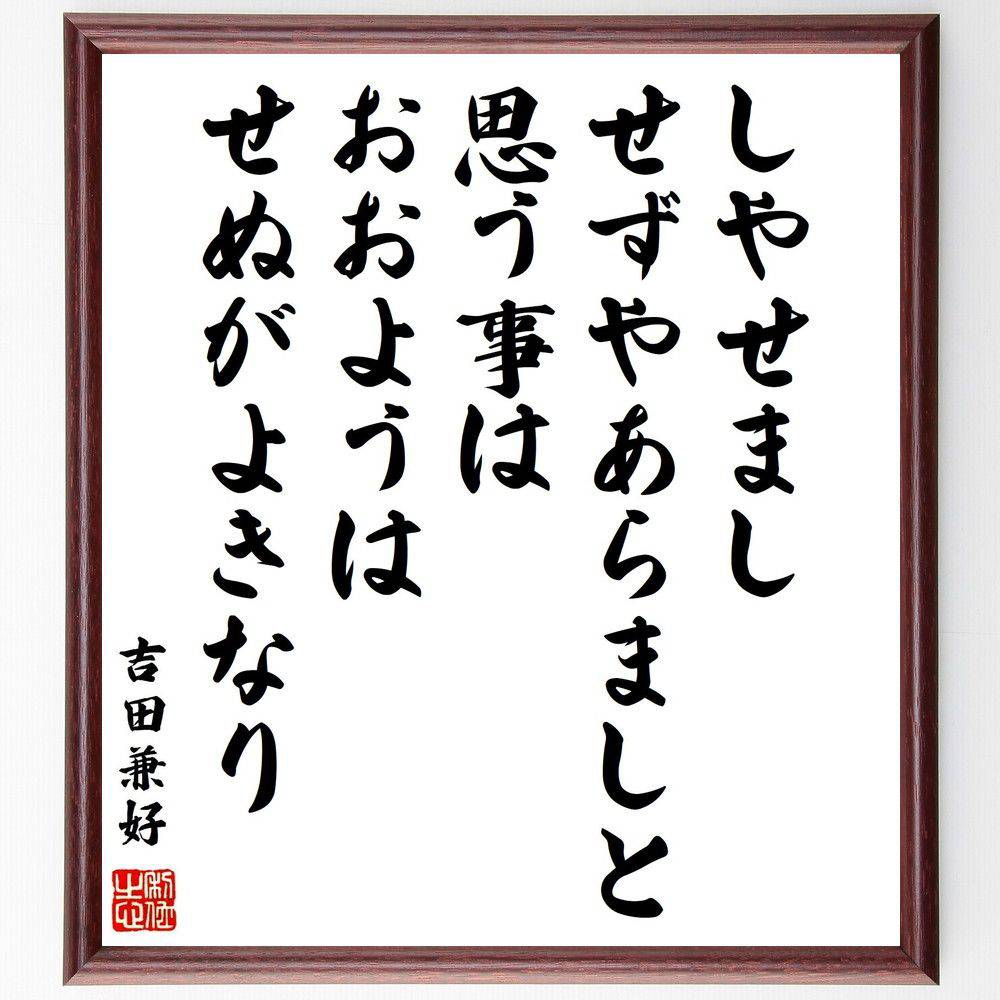 しやせまし
せずやあらましと
思う事は
おおようは
せぬがよきなり
吉田兼好